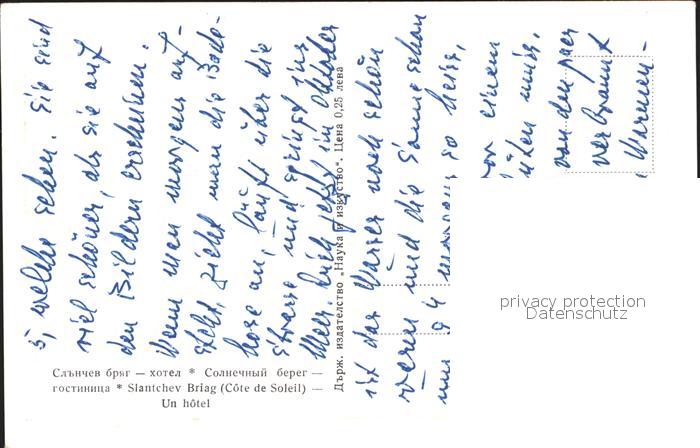 5, welche sehen. Sie sind
viel schöner, als sie auf
den Bildern erscheinen.
Wenn man morgens auf-
steht, zieht man die Bade-
hose an, läuft über die
Strasse und springt ins
Meer. Auch jetzt im Oktober
ist das Wasser noch schön
warm und die Sonne schon
um 9 h so heiss,
von einem
von den paar
verbrannt
Слънчев бряг — хотел * Солнечный берег —
гостиница * Slantchev Briag (Côte de Soleil) —
Un hôtel
Държ. издателство „Наука и изкуство“. Цена 0,25 лева
privacy protection
Datenschutz